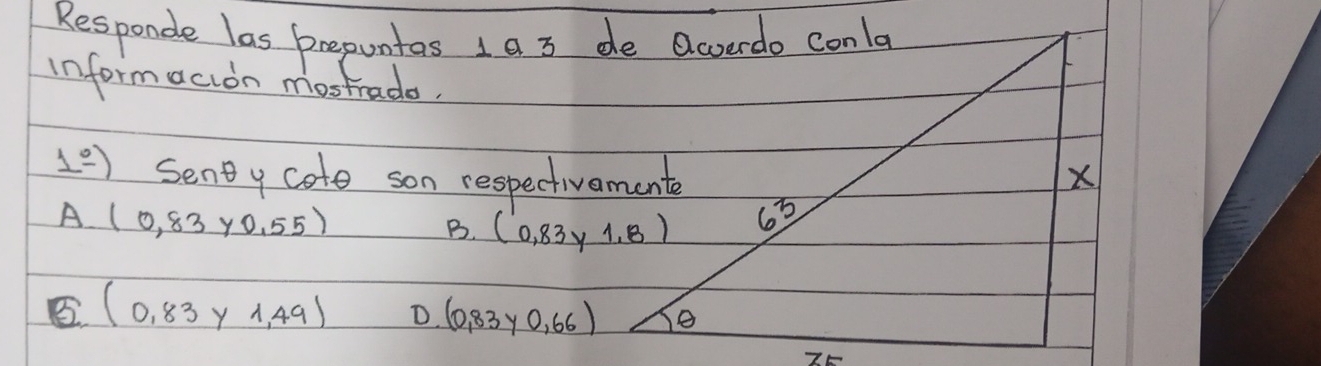 Responde las preguntas 1 a 3 de acuerdo con la
información mostrada.
1º) Senθ y cotθ son respectivamente
A. (0,83 y 0,55) B. (0,83 y 1,8)
C. (0,83 y 1,49) D. (0,83 y 0,66)
63
x
θ
35